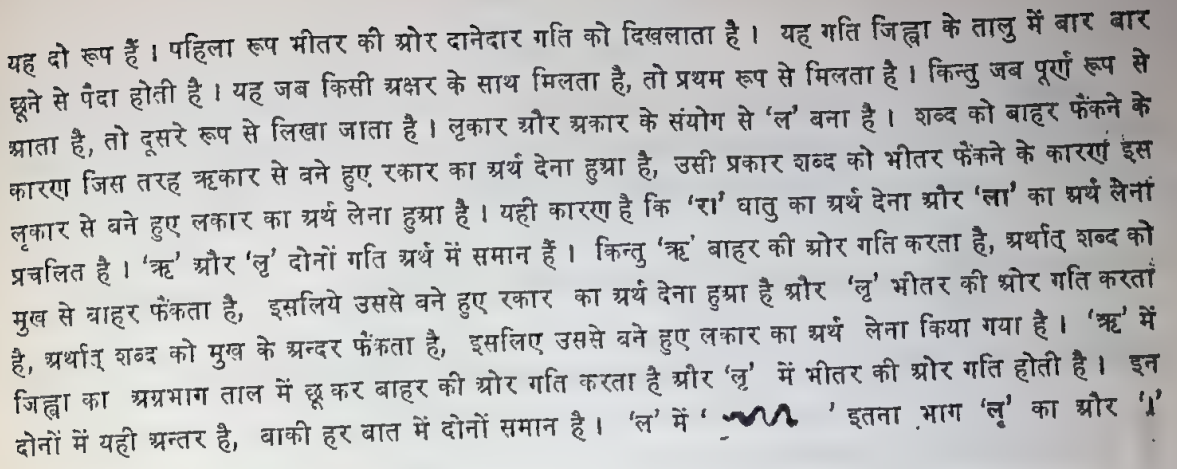 यह दो रूप हैं । पहिला रूप भीतर की ओर दानेदार गति को दिखलाता है । यह गति जिह्वा के तालु में बार बार
छूने से पैदा होती है । यह जब किसी अक्षर के साथ मिलता है, तो प्रथम रूप से मिलता है । किन्तु जब पूर्ण रूप से
आता है, तो दूसरे रूप से लिखा जाता है । लृकार और अकार के संयोग से ‘ल’ बना है । शब्द को बाहर फैंकने के
कारण जिस तरह ऋकार से बने हुए रकार का अर्थ देना हुआ है, उसी प्रकार शब्द को भीतर फेंकने के कारण इस
लृकार से बने हुए लकार का अर्थ लेना हुआ है । यही कारण है कि ‘रा’ धातु का अर्थ देना और ‘ला’ का अर्थ लेना
प्रचलित है । ‘ऋ’ और ‘लृ’ दोनों गति अर्थ में समान हैं । किन्तु ‘ऋ’ बाहर की ओर गति करता है, अर्थात् शब्द को
मुख से बाहर फैंकता है, इसलिये उससे बने हुए रकार का अर्थ देना हुआ है और ‘लृ’ भीतर की ओर गति करता
है, अर्थात् शब्द को मुख के अन्दर फैंकता है, इसलिए उससे बने हुए लकार का अर्थ लेना किया गया है । ‘ऋ’ में
जिह्वा का अग्रभाग ताल में छू कर बाहर की ओर गति करता है और ‘लृ’ में भीतर की ओर गति होती है । इन
दोनों में यही अन्तर है, बाकी हर बात में दोनों समान है । ‘ल’ में ‘ ’ इतना भाग ‘लृ’ का और ‘ा’